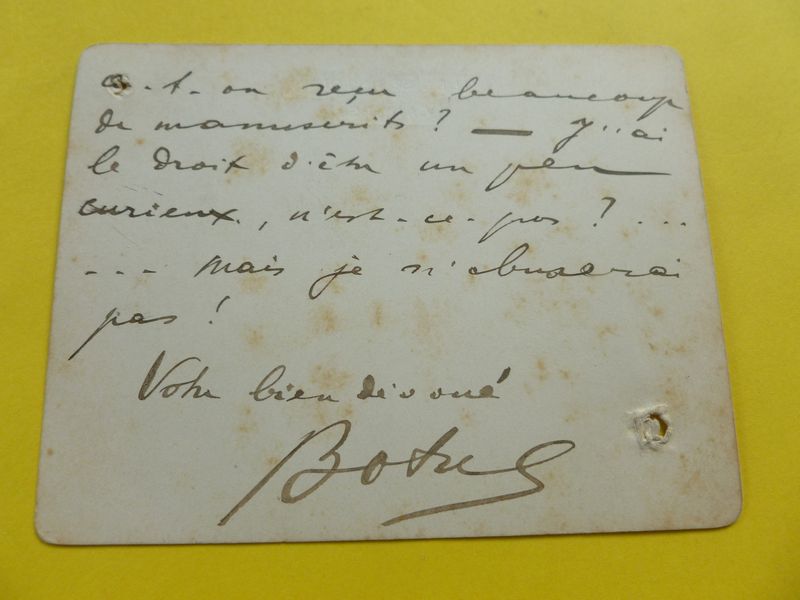 a-t-on reçu beaucoup
de manuscrits ? — J'ai
le droit d'être un peu
curieux, n'est-ce-pas ? ...
--- mais je n'abuserai
pas !
Votre bien dévoué
Botrel